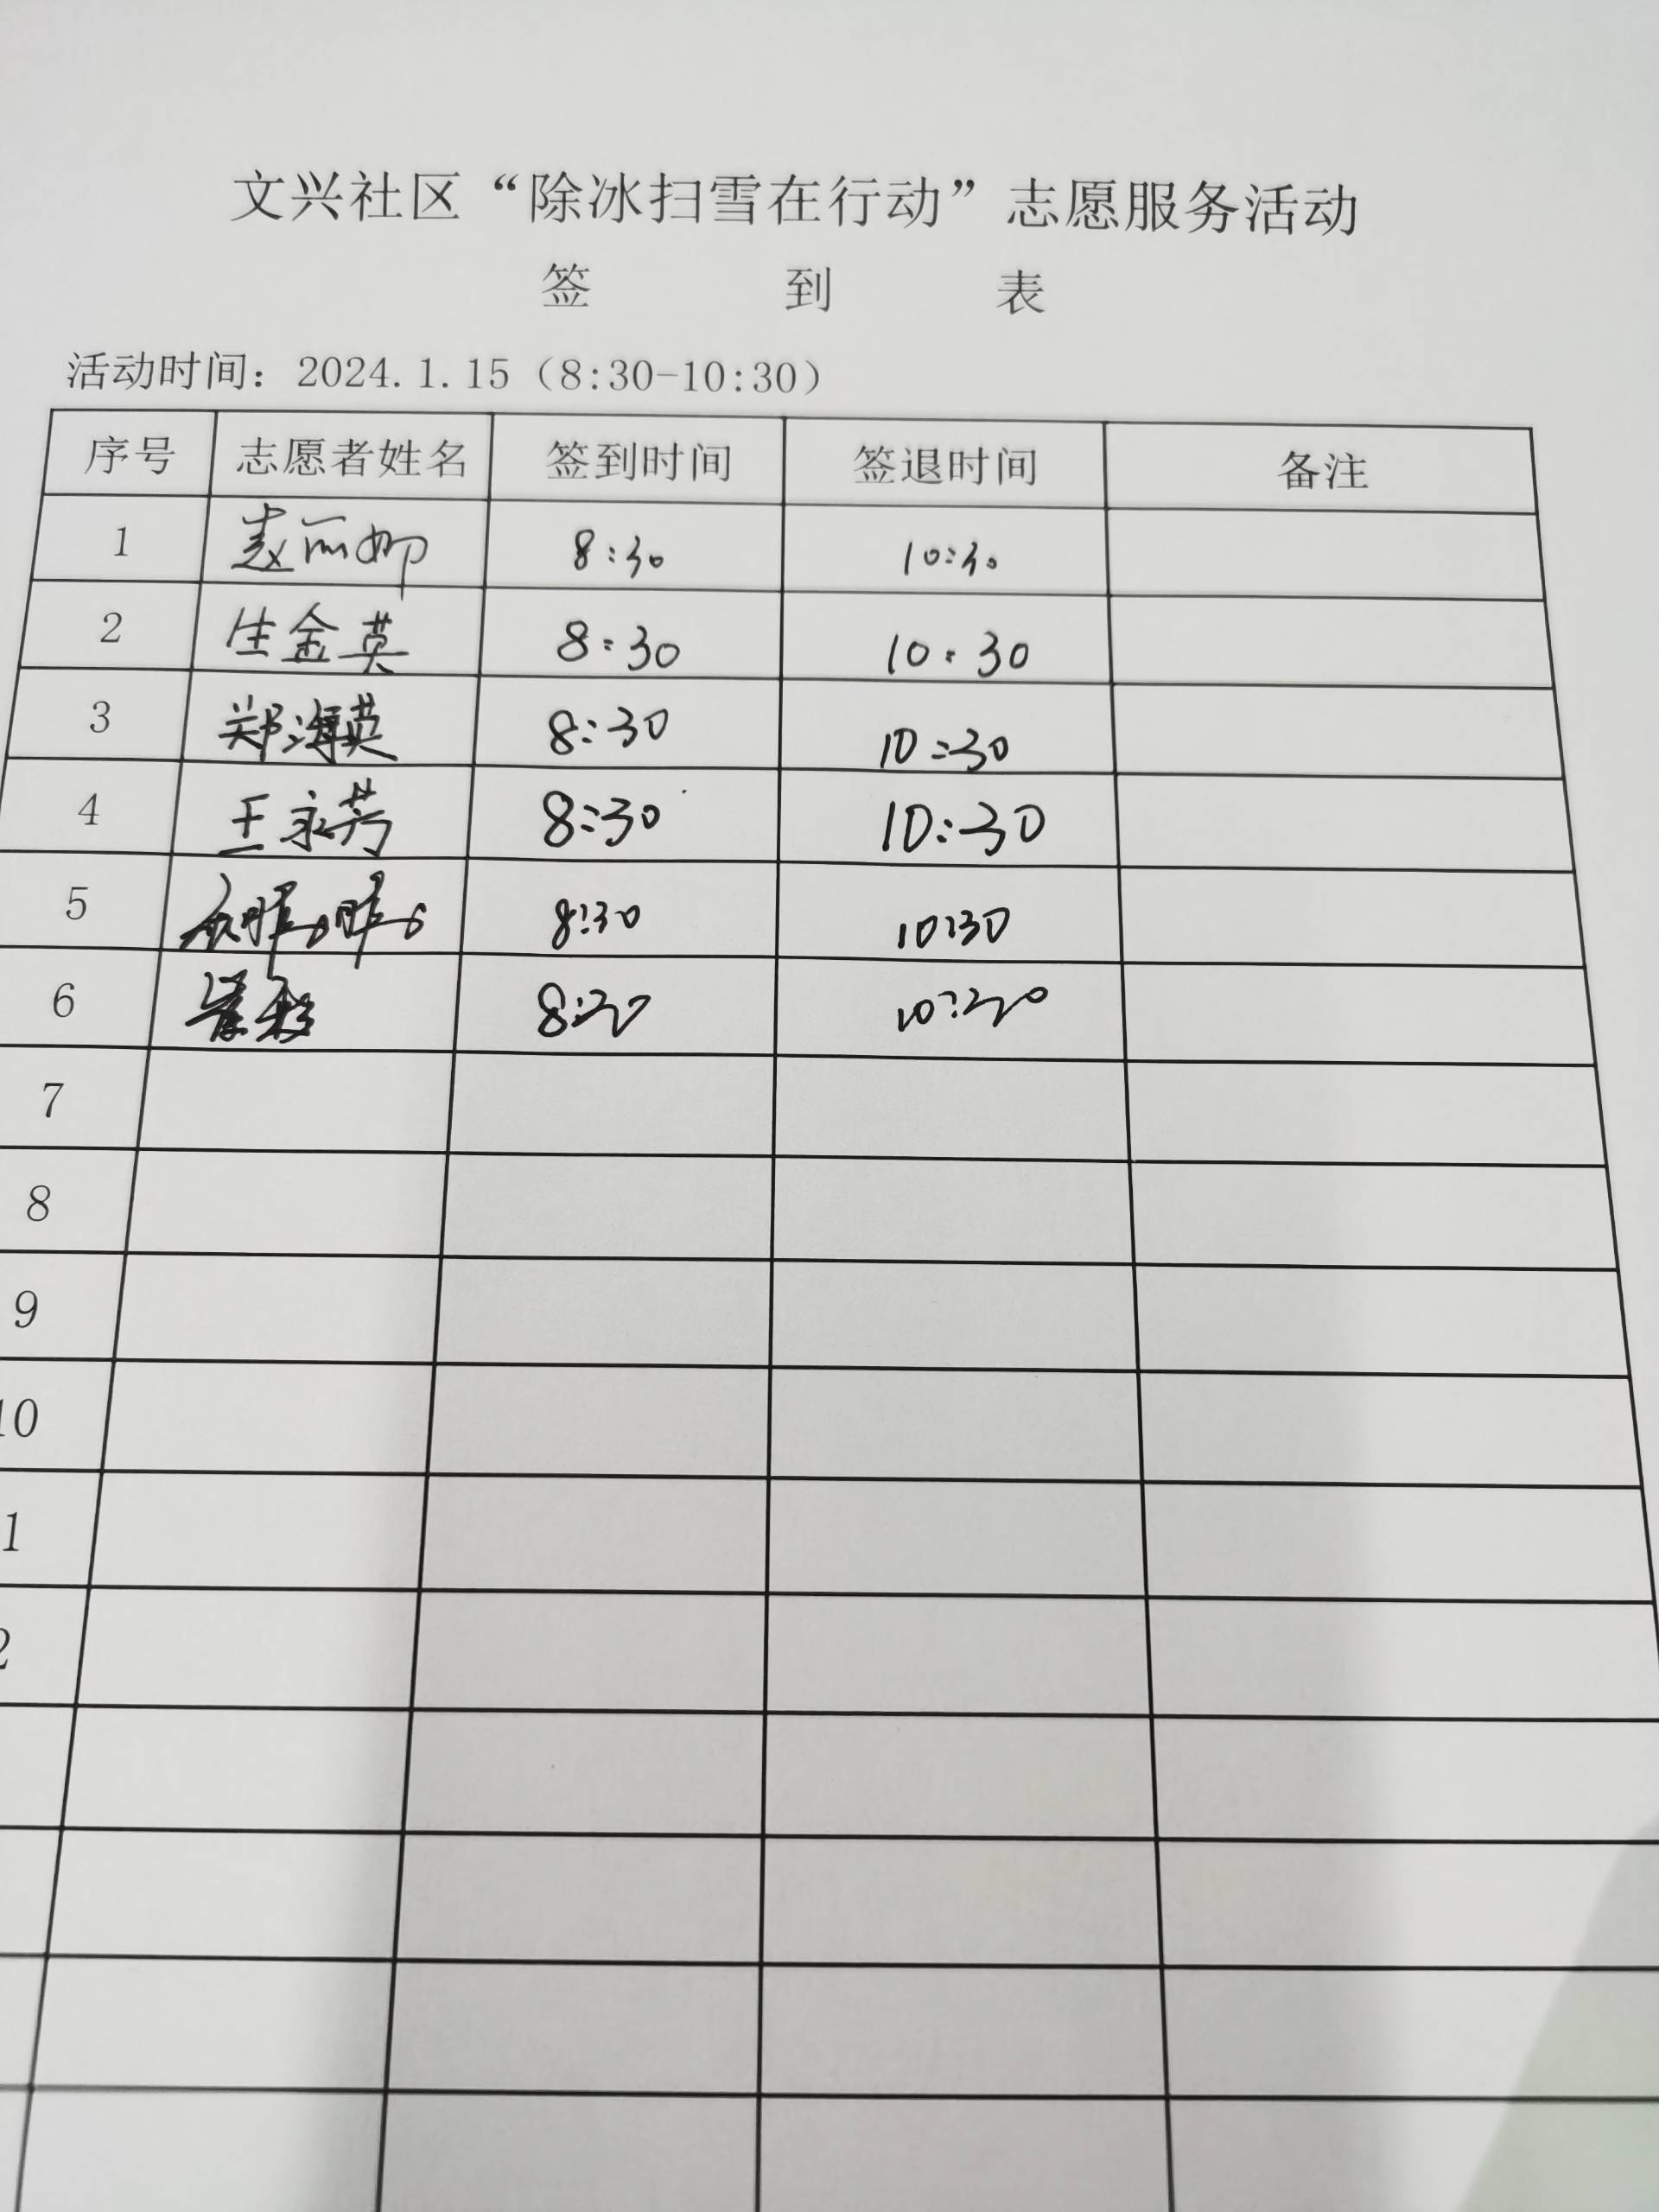 文兴社区“除冰扫雪在行动”志愿服务活动
签 到 表
活动时间：2024.1.15（8:30-10:30）
序号 志愿者姓名 签到时间 签退时间 备注
1 赵丽娜 8:30 10:30
2 生金英 8:30 10:30
3 郑海英 8:30 10:30
4 王永芳 8:30 10:30
5 8:30 10:30
6 8:30 10:30
7
8
9
10
1
2